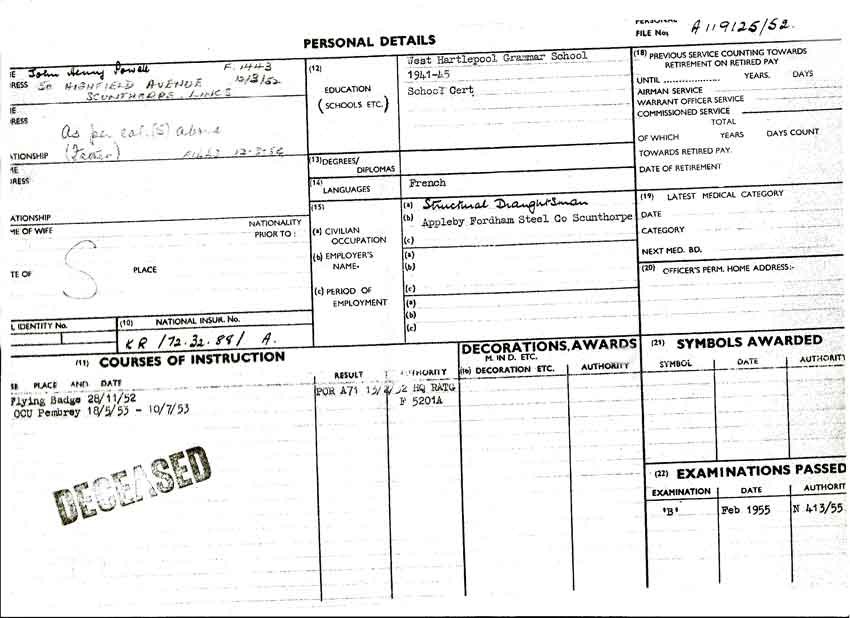 PERSONAL
FILE No. A119125/52.
PERSONAL DETAILS
John Henry Powell F.1443
RESS 50 HIGHFIELD AVENUE 12/3/52
SCUNTHORPE. LINCS
RESS
As per cat. (S) above
(Father)
ATIONSHIP
RESS
ATIONSHIP
ME OF WIFE
NATIONALITY
PRIOR TO:
S
TE OF PLACE
IDENTITY No.
(10) NATIONAL INSUR. No.
KR /72.32.88/ A.
(12)
EDUCATION
(SCHOOLS ETC.)
West Hartlepool Grammar School
1941-45
School Cert
(13) DEGREES/
DIPLOMAS
(14)
LANGUAGES
French
(15)
(a) CIVILIAN
OCCUPATION
(b) EMPLOYER'S
NAME.
(c) PERIOD OF
EMPLOYMENT
(a) Structural Draughtsman
(b) Appleby Fordham Steel Co Scunthorpe
(c)
(a)
(b)
(c)
(a)
(b)
(c)
(18) PREVIOUS SERVICE COUNTING TOWARDS
RETIREMENT ON RETIRED PAY
UNTIL .................. YEARS. DAYS
AIRMAN SERVICE
WARRANT OFFICER SERVICE
COMMISSIONED SERVICE
TOTAL
OF WHICH YEARS DAYS COUNT
TOWARDS RETIRED PAY.
DATE OF RETIREMENT
(19) LATEST MEDICAL CATEGORY
DATE
CATEGORY
NEXT MED. BD.
(20) OFFICER'S PERM. HOME ADDRESS:-
(11) COURSES OF INSTRUCTION
PLACE AND DATE
RESULT
AUTHORITY
Flying Badge 28/11/52
POR A71 HQ RATG
OCU Pembrey 18/5/53 - 10/7/53
F 5201A
DECEASED
DECORATIONS, AWARDS
M. IN D. ETC.
(16) DECORATION ETC. AUTHORITY
(21) SYMBOLS AWARDED
SYMBOL DATE AUTHORITY
(22) EXAMINATIONS PASSED
EXAMINATION DATE AUTHORIT
"B" Feb 1955 N 413/55